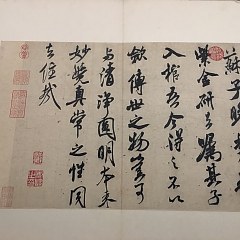 蘇子瞻
紫金研去囑其子
入棺吾今得之不以
斂傳世之物豈可
與清淨圓明本來
妙覺真常之性同
去住哉